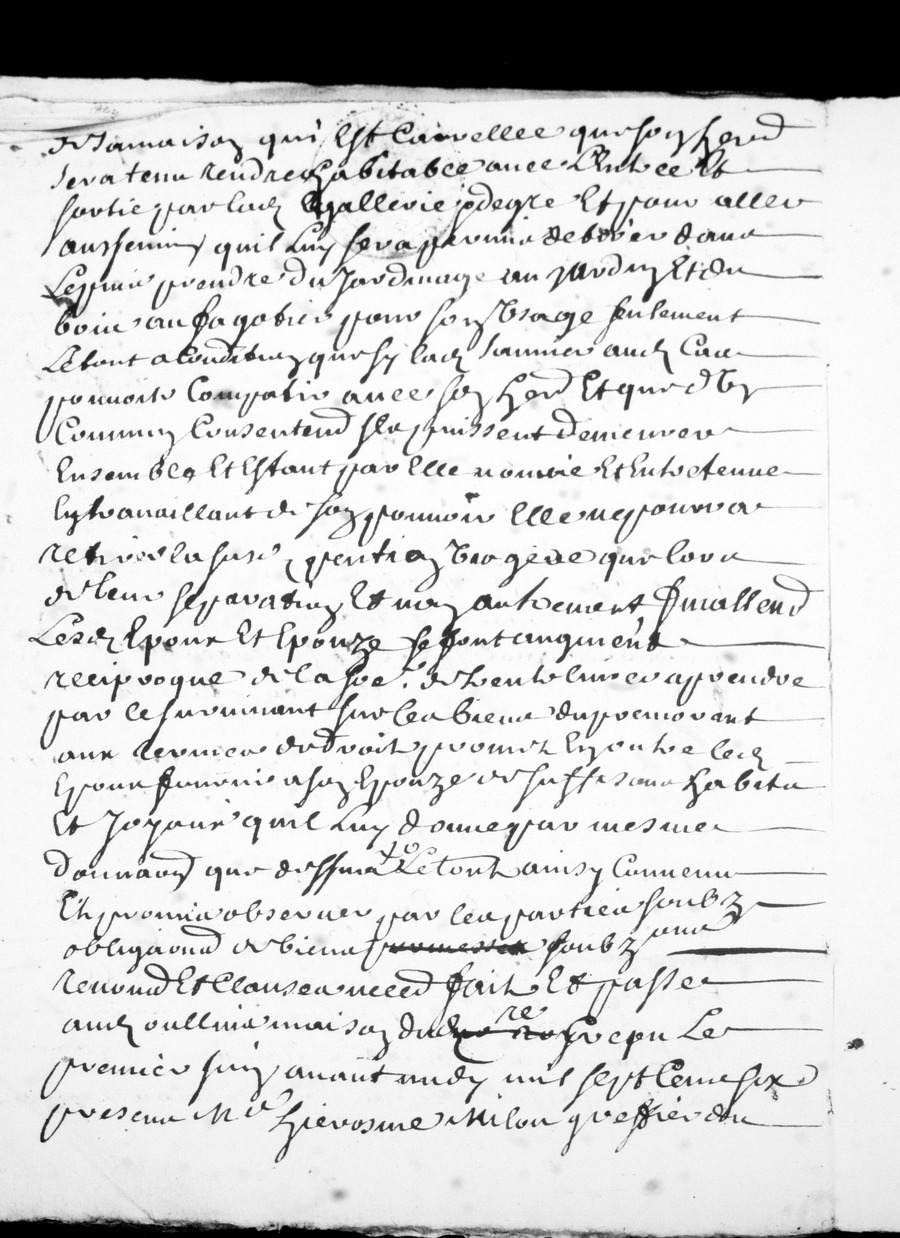 de sa maison qui Est Carrellee que son herd
sera tenu rendre habitable avec L'Entrée Et
sortie par lad gallerie & degre Et pour aller
quil luy sera permis de tirer dans
Le puis prendre du Jardinage au Jardin Et du
bois au fagotier pour son Usage seulement
Le tout a Condition que sy lad Jannier aud Cas
pouvoit Compatir avec son herd Et que d'Un
Commun Consentemd Ils puissent demeurer
Ensemble Et Estant par Elle nourie Et Entretenue
En travaillant de son pouvoir Elle ne pourra
retirer lasus pention Viagere que lors
de leur separation Et non autrement finallemd
Lesd Epoux Et Epouze se font augment
reciproque de la soe de trente livres a prendre
par le survivant sur les biens du premourant
aux termes de droit promet En outre led
Epoux fournir a son Epouze de suffisans habits
Et Joyaux quil Luy donne par mesme
donnaon que dessus Le tout ainsy Convenu
Et promis observer par les parties soubz
obligaons de biens soubz
renond Et Clauses necess fait Et passé
aud oullins maison dud re Le
premier juin avant midy mil sept Cens six
presens Me Hierosme Milon greffier du